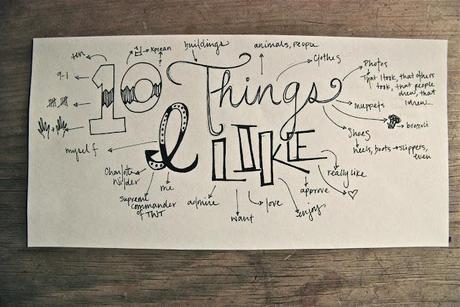 ten
Korean
buildings
animals, people
Clothes
Photos
That I took, that others
took, that people
drew, that
I drew...
9-1
10 Things
muppets
broccoli
Shoes
heels, boots → slippers,
even
myself
I LIKE
really like
Charlotte
Wilder
me
Supreme
commander
of TWT
admire
want
love
enjoy
approve